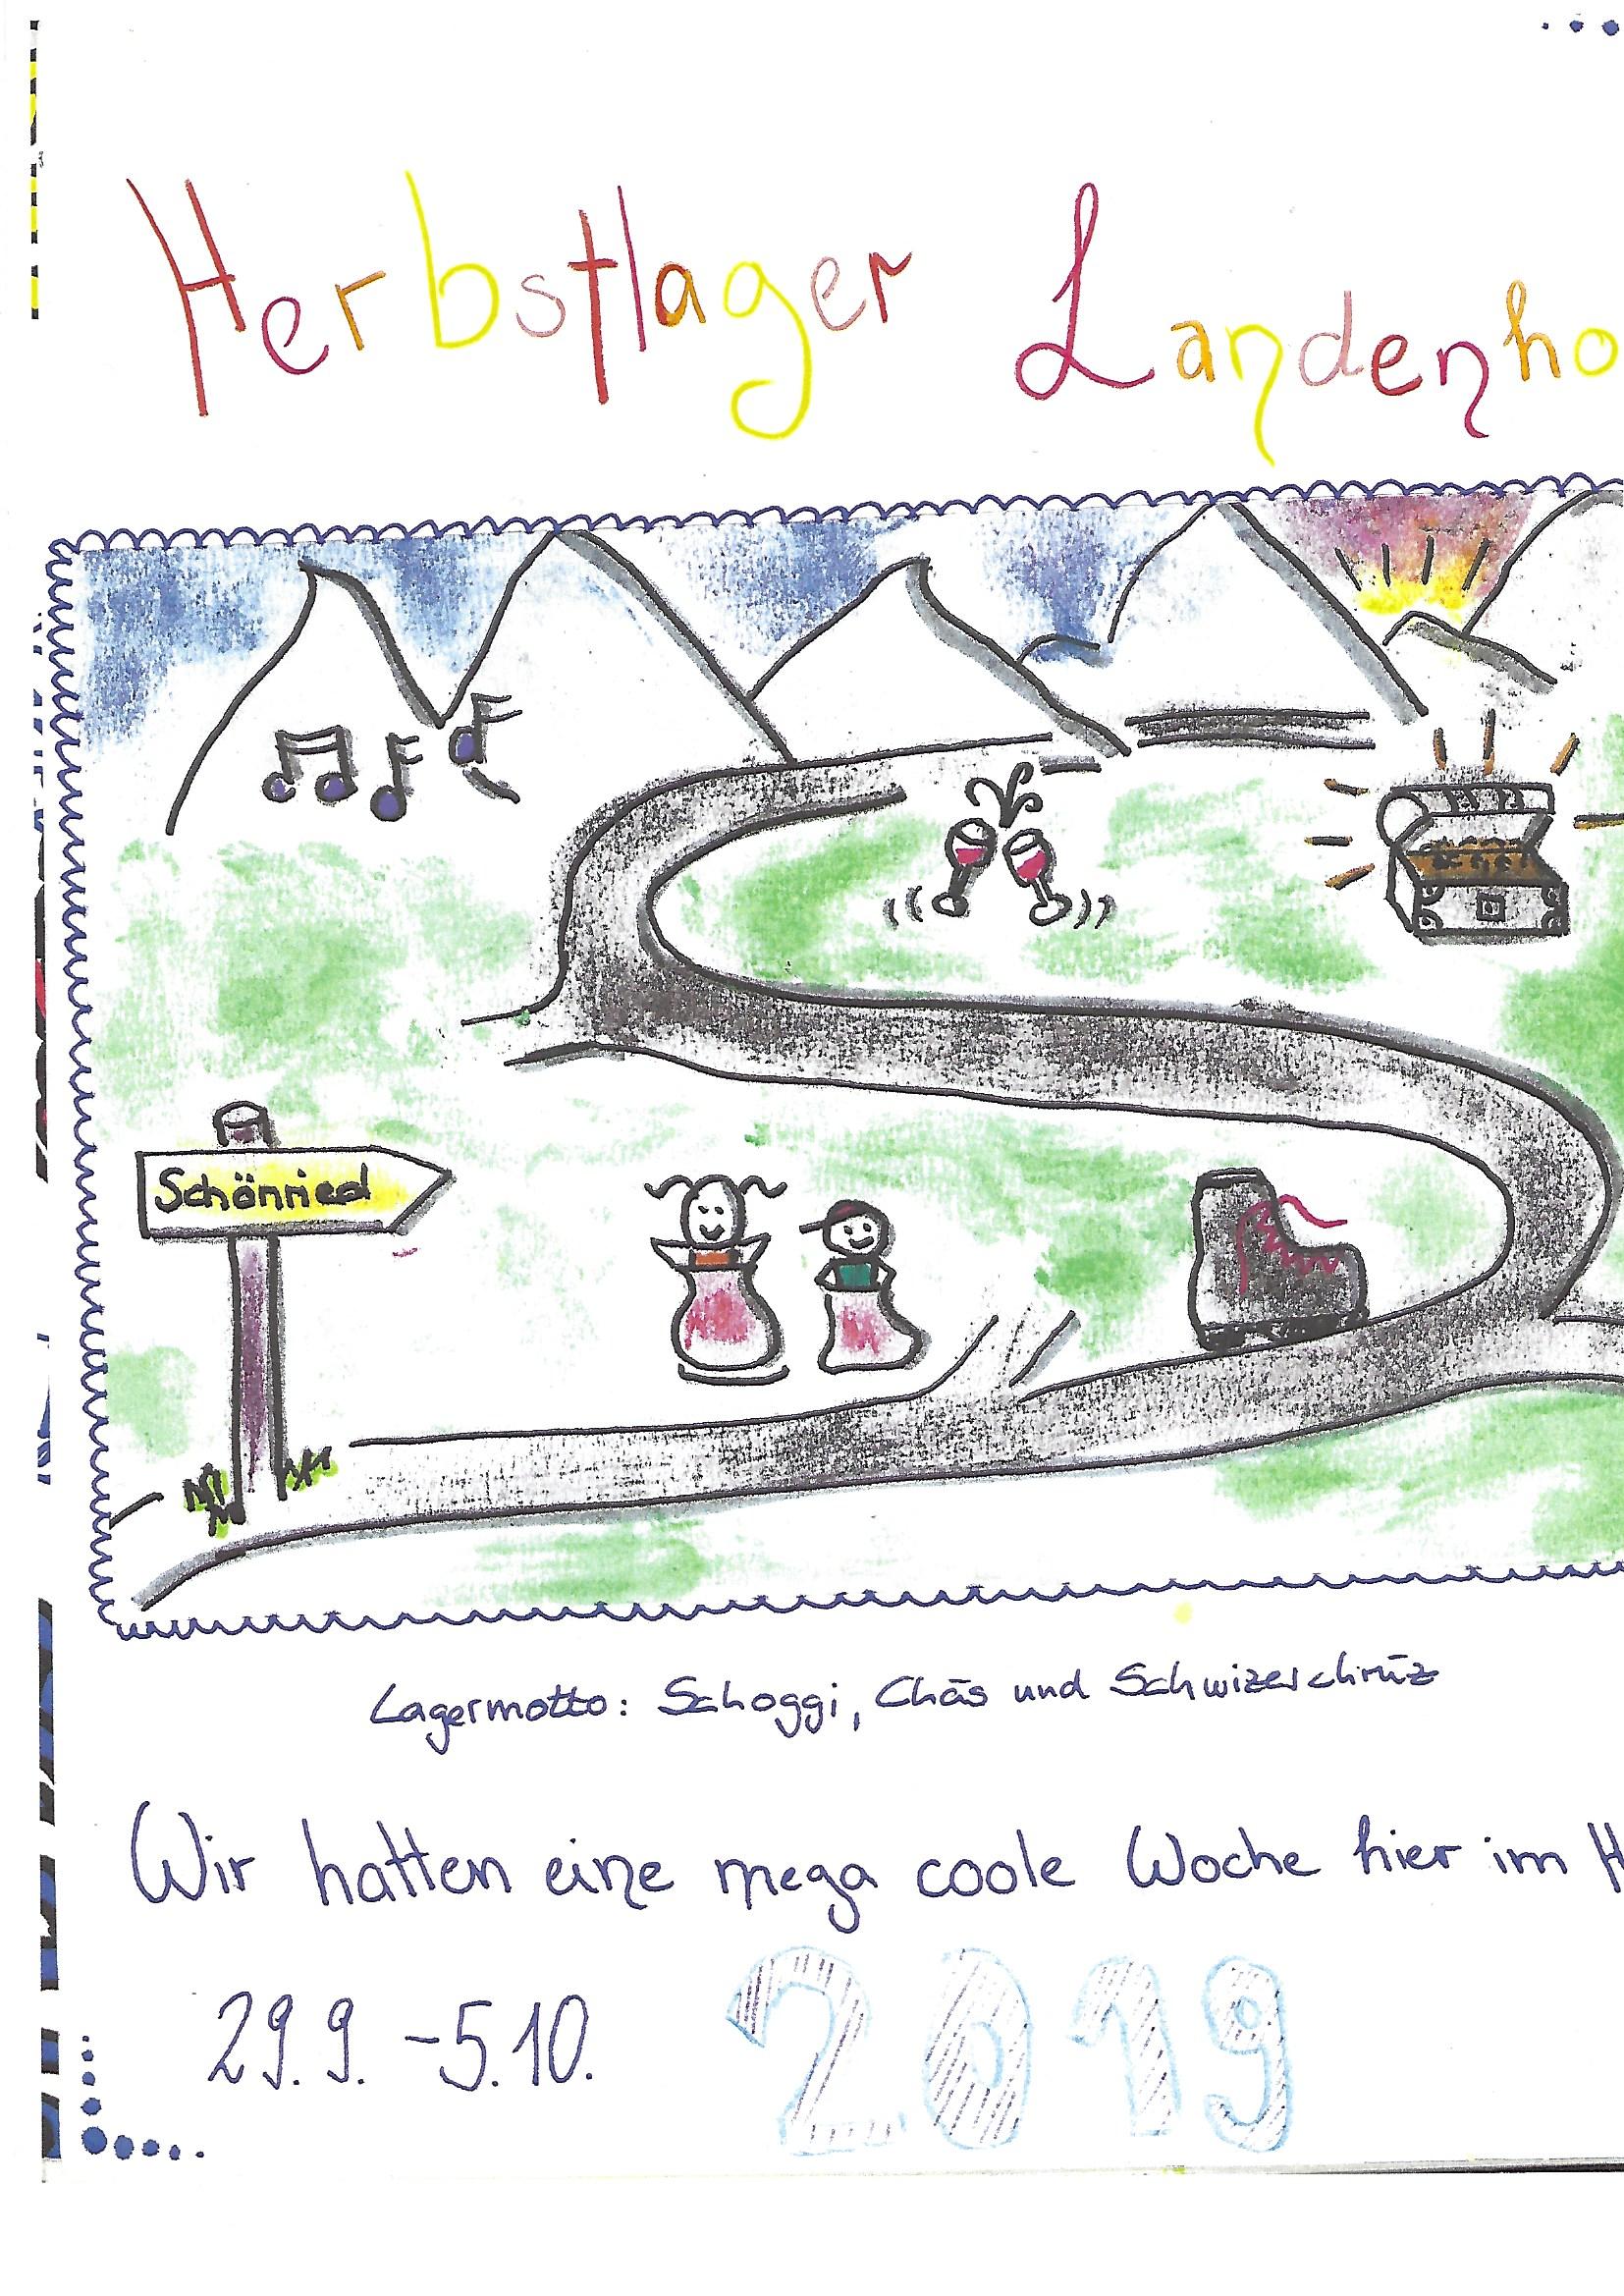 Herbstlager Landenho
Schönried
Lagermotto: Schoggi, Chäs und Schwizerchrüz
Wir hatten eine mega coole Woche hier im H
29.9. - 5.10. 2019